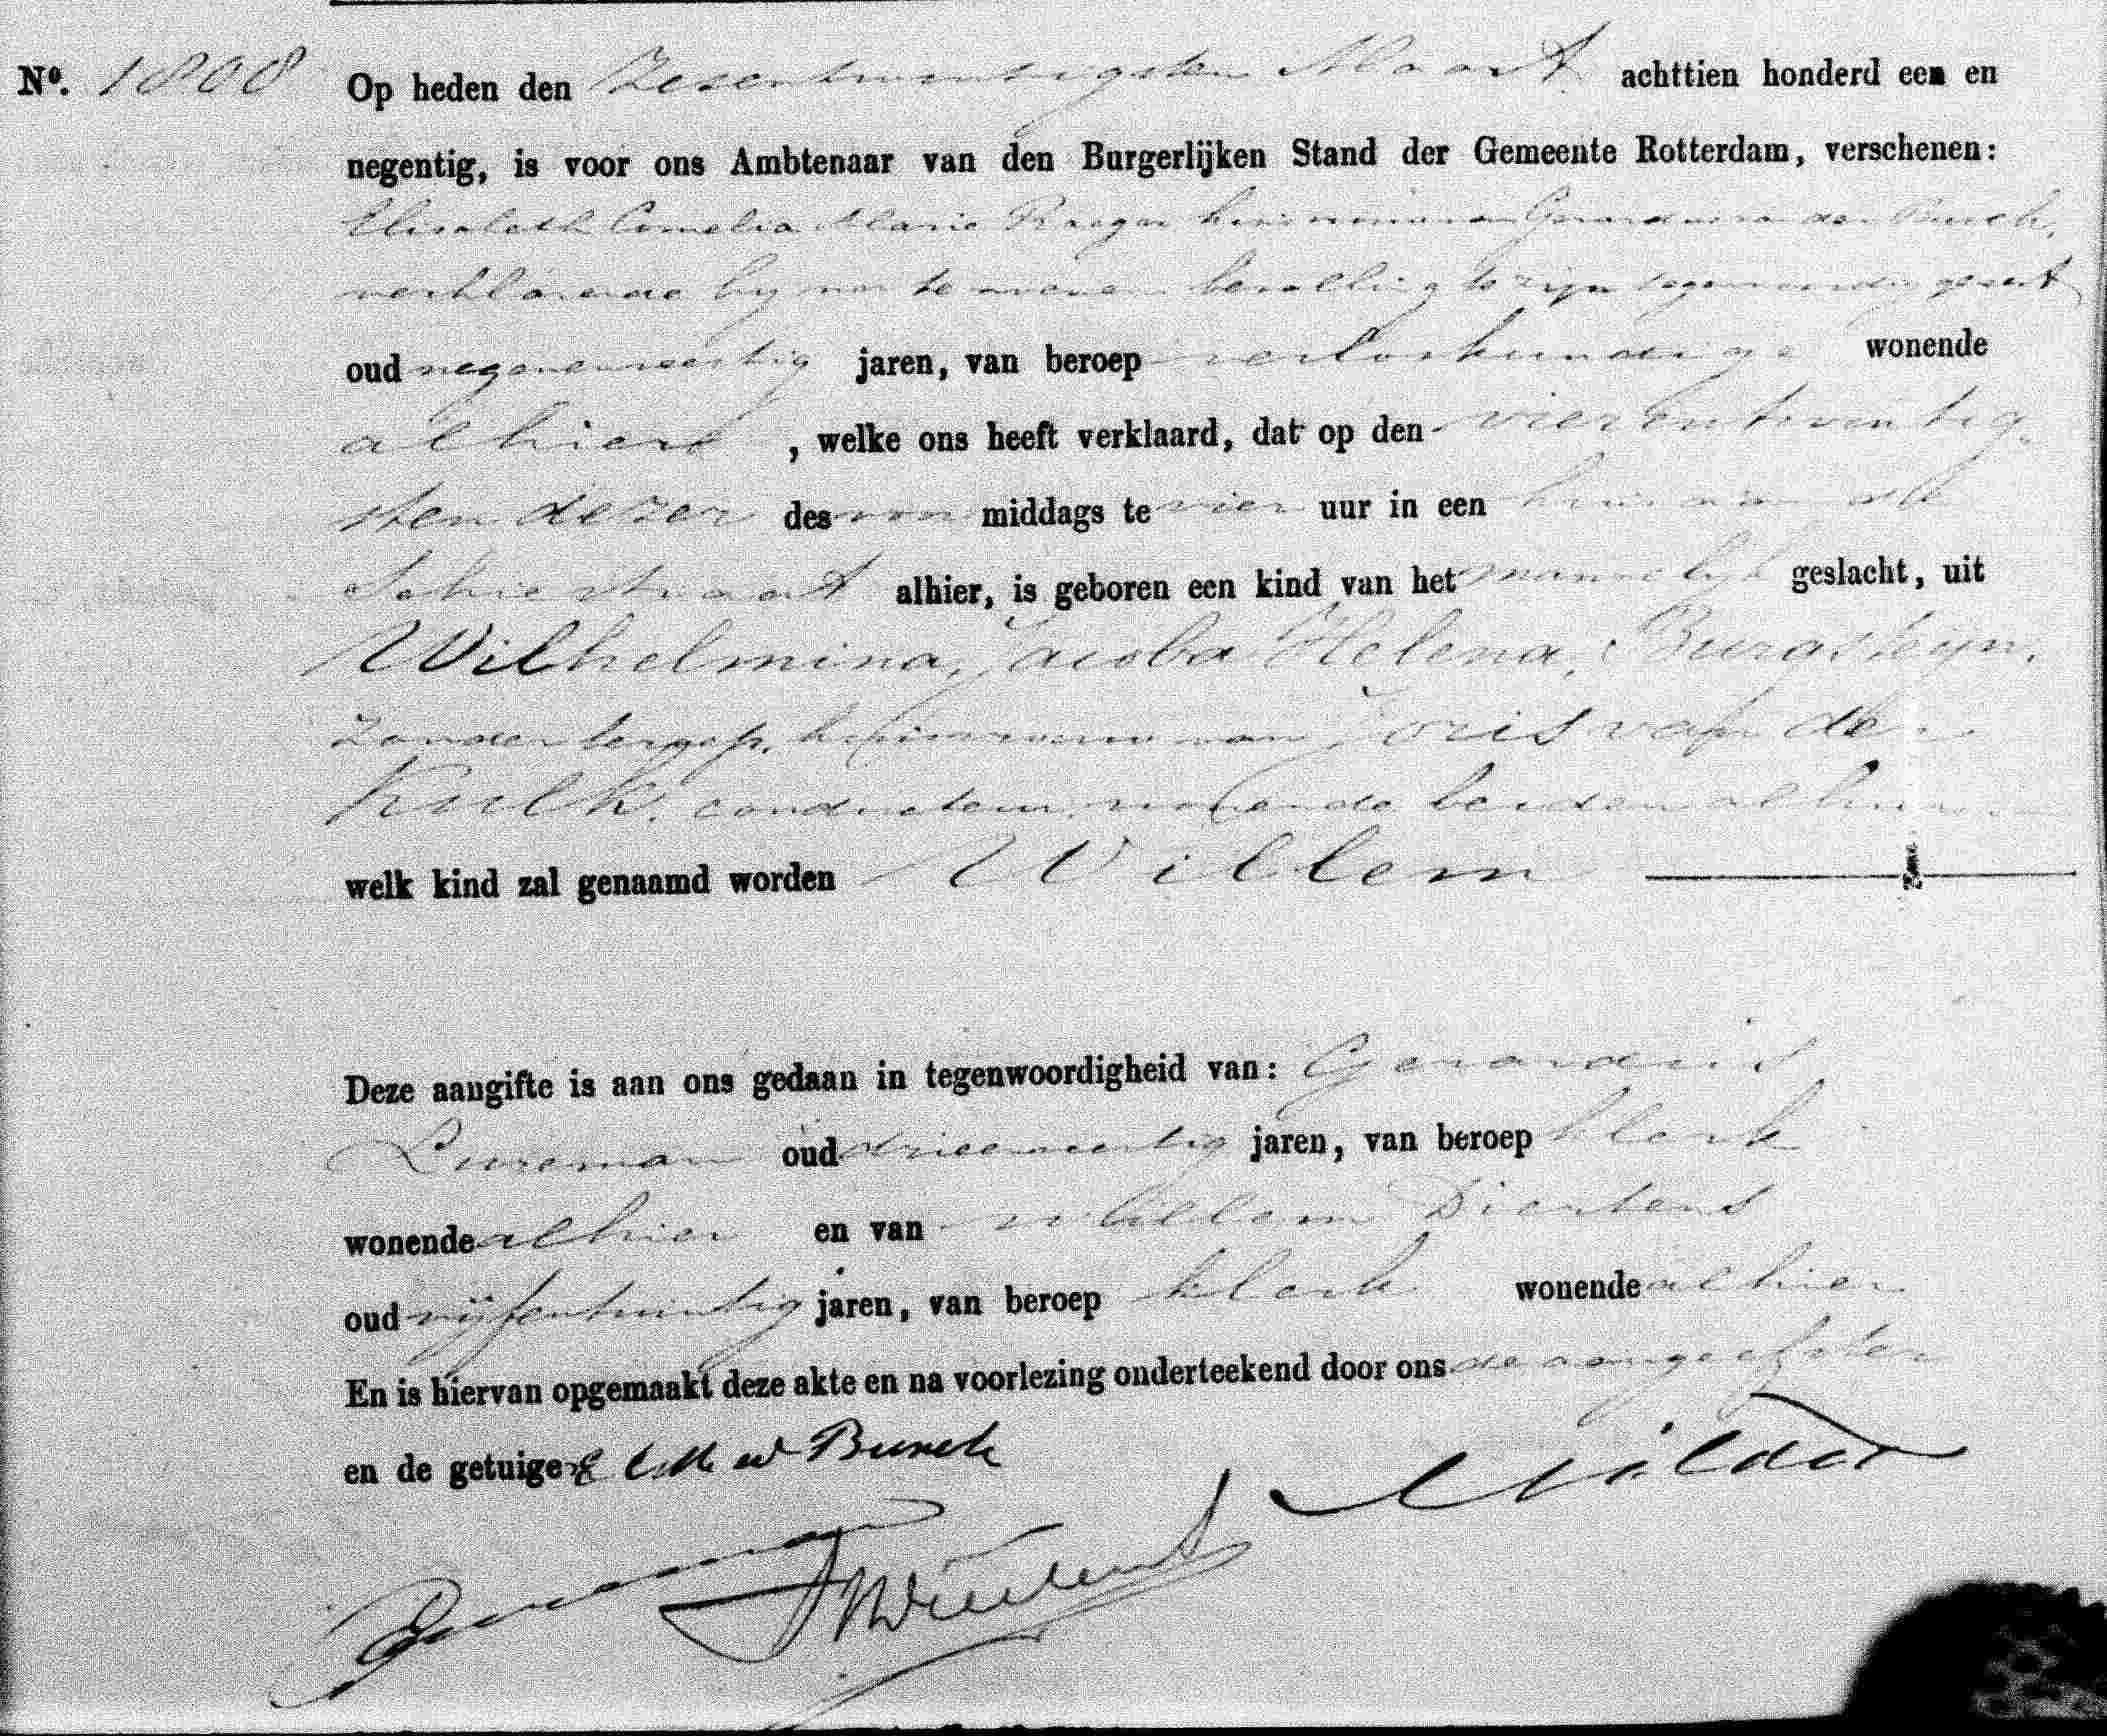 No. 1808 Op heden den Zesentwintigsten Maart achttien honderd een en
negentig, is voor ons Ambtenaar van den Burgerlijken Stand der Gemeente Rotterdam, verschenen:
Elisabeth Cornelia Maria huisvrouw van Gerard van den Busch,
verklarende bij na te noemen bevalling te zijn tegenwoordig geweest
oud negenenveertig jaren, van beroep verloskundige wonende
alhier, welke ons heeft verklaard, dat op den vierentwintig-
sten dezer des voor middags te vier uur in een huis aan de
Schiestraat alhier, is geboren een kind van het mannelijk geslacht, uit
Wilhelmina, Jacoba Helena, Burgsteyn,
zonder beroep, huisvrouw van Joris van der
Kulk, conducteur, wonende beiden alhier
welk kind zal genaamd worden Willem
Deze aangifte is aan ons gedaan in tegenwoordigheid van: Gerardus
Bureman oud drieenveertig jaren, van beroep klerk
wonende alhier en van Willem Dientens
oud vijfentwintig jaren, van beroep klerk wonende alhier
En is hiervan opgemaakt deze akte en na voorlezing onderteekend door ons de aangeefster
en de getuigen Busch